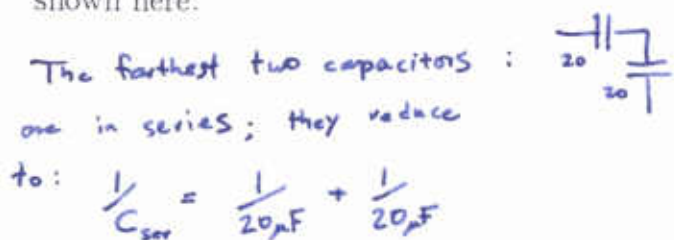 shown here:
The farthest two capacitors :
are in series; they reduce
to: 1/C_ser = 1/20μF + 1/20μF
20
20